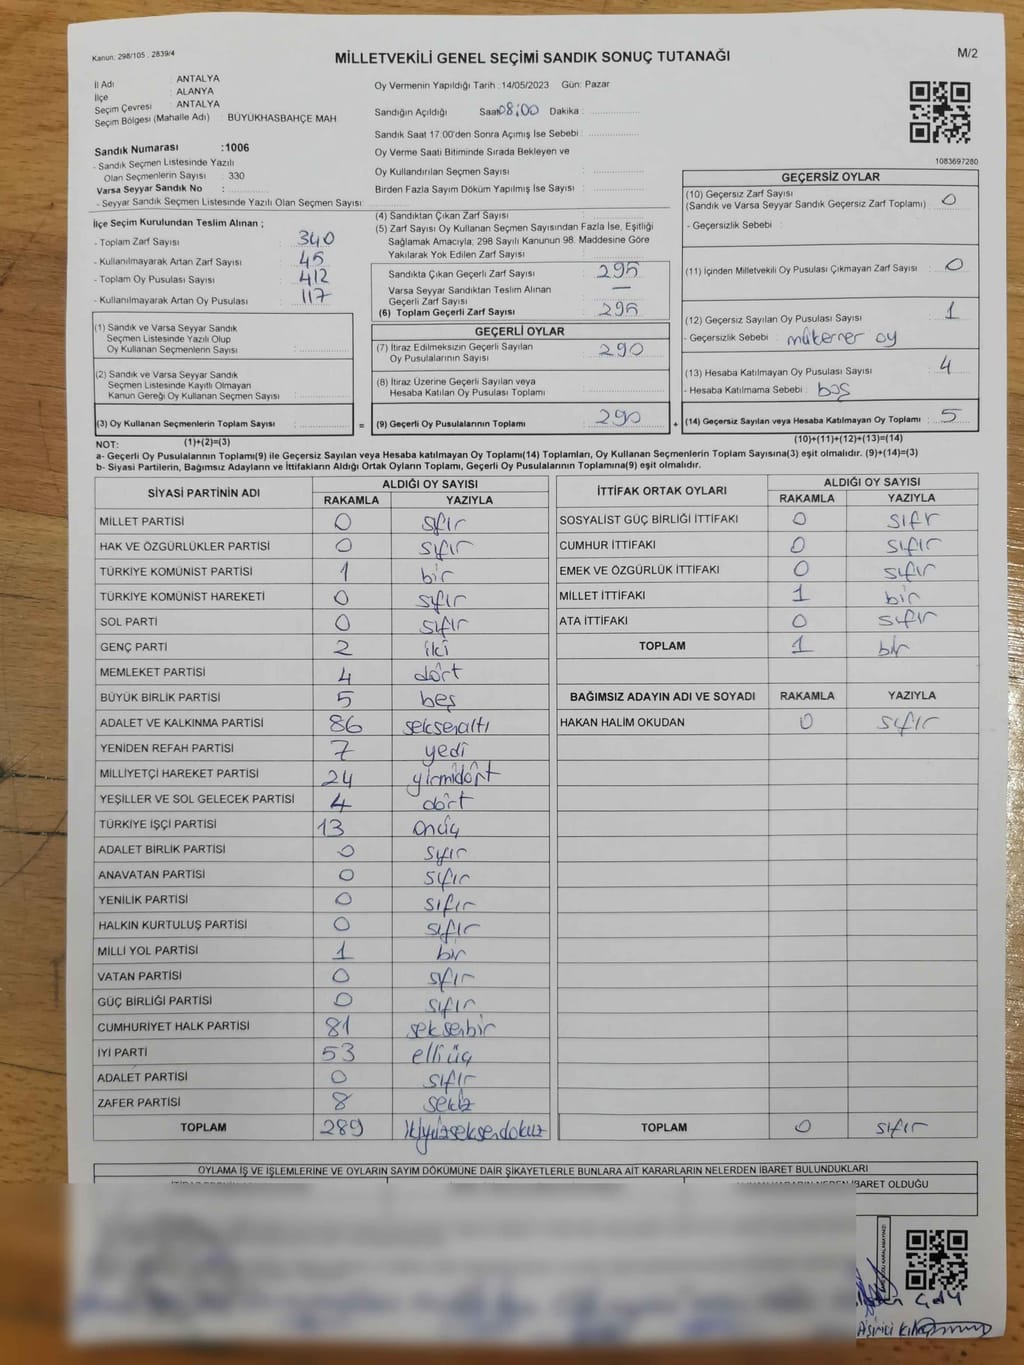 Kanun: 298/105 , 2839/4
MİLLETVEKİLİ GENEL SEÇİMİ SANDIK SONUÇ TUTANAĞI
M/2
İl Adı : ANTALYA
İlçe : ALANYA
Seçim Çevresi : ANTALYA
Seçim Bölgesi (Mahalle Adı) : BÜYÜKHASBAHÇE MAH
Sandık Numarası :1006
- Sandık Seçmen Listesinde Yazılı
Olan Seçmenlerin Sayısı : 330
Varsa Seyyar Sandık No :
- Seyyar Sandık Seçmen Listesinde Yazılı Olan Seçmen Sayısı:
Oy Vermenin Yapıldığı Tarih : 14/05/2023 Gün: Pazar
Sandığın Açıldığı Saat: 08:00 Dakika :
Sandık Saat 17:00'den Sonra Açımış İse Sebebi :
Oy Verme Saati Bitiminde Sırada Bekleyen ve
Oy Kullandırılan Seçmen Sayısı :
Birden Fazla Sayım Döküm Yapılmış İse Sayısı :
1083697280
İlçe Seçim Kurulundan Teslim Alınan ;
- Toplam Zarf Sayısı : 340
- Kullanılmayarak Artan Zarf Sayısı : 45
- Toplam Oy Pusulası Sayısı : 412
- Kullanılmayarak Artan Oy Pusulası : 117
(1) Sandık ve Varsa Seyyar Sandık
Seçmen Listesinde Yazılı Olup
Oy Kullanan Seçmenlerin Sayısı :
(2) Sandık ve Varsa Seyyar Sandık
Seçmen Listesinde Kayıtlı Olmayan
Kanun Gereği Oy Kullanan Seçmen Sayısı :
(3) Oy Kullanan Seçmenlerin Toplam Sayısı : =
(4) Sandıktan Çıkan Zarf Sayısı :
(5) Zarf Sayısı Oy Kullanan Seçmen Sayısından Fazla İse, Eşitliği
Sağlamak Amacıyla; 298 Sayılı Kanunun 98. Maddesine Göre
Yakılarak Yok Edilen Zarf Sayısı :
Sandıkta Çıkan Geçerli Zarf Sayısı : 295
Varsa Seyyar Sandıktan Teslim Alınan
Geçerli Zarf Sayısı : —
(6) Toplam Geçerli Zarf Sayısı : 295
GEÇERLİ OYLAR
(7) İtiraz Edilmeksizin Geçerli Sayılan
Oy Pusulalarının Sayısı : 290
(8) İtiraz Üzerine Geçerli Sayılan veya
Hesaba Katılan Oy Pusulası Toplamı :
(9) Geçerli Oy Pusulalarının Toplamı : 290 +
GEÇERSİZ OYLAR
(10) Geçersiz Zarf Sayısı
(Sandık ve Varsa Seyyar Sandık Geçersiz Zarf Toplamı) : 0
- Geçersizlik Sebebi :
(11) İçinden Milletvekili Oy Pusulası Çıkmayan Zarf Sayısı : 0
(12) Geçersiz Sayılan Oy Pusulası Sayısı : 1
- Geçersizlik Sebebi : mükerrer oy
(13) Hesaba Katılmayan Oy Pusulası Sayısı : 4
- Hesaba Katılmama Sebebi : boş
(14) Geçersiz Sayılan veya Hesaba Katılmayan Oy Toplamı : 5
NOT: (1)+(2)=(3)
(10)+(11)+(12)+(13)=(14)
a- Geçerli Oy Pusulalarının Toplamı(9) ile Geçersiz Sayılan veya Hesaba katılmayan Oy Toplamı(14) Toplamları, Oy Kullanan Seçmenlerin Toplam Sayısına(3) eşit olmalıdır. (9)+(14)=(3)
b- Siyasi Partilerin, Bağımsız Adayların ve İttifakların Aldığı Ortak Oyların Toplamı, Geçerli Oy Pusulalarının Toplamına(9) eşit olmalıdır.
SİYASİ PARTİNİN ADI ALDIĞI OY SAYISI
RAKAMLA YAZIYLA
MİLLET PARTİSİ 0 sıfır
HAK VE ÖZGÜRLÜKLER PARTİSİ 0 sıfır
TÜRKİYE KOMÜNİST PARTİSİ 1 bir
TÜRKİYE KOMÜNİST HAREKETİ 0 sıfır
SOL PARTİ 0 sıfır
GENÇ PARTİ 2 iki
MEMLEKET PARTİSİ 4 dört
BÜYÜK BİRLİK PARTİSİ 5 beş
ADALET VE KALKINMA PARTİSİ 86 seksenaltı
YENİDEN REFAH PARTİSİ 7 yedi
MİLLİYETÇİ HAREKET PARTİSİ 24 yirmidört
YEŞİLLER VE SOL GELECEK PARTİSİ 4 dört
TÜRKİYE İŞÇİ PARTİSİ 13 onüç
ADALET BİRLİK PARTİSİ 0 sıfır
ANAVATAN PARTİSİ 0 sıfır
YENİLİK PARTİSİ 0 sıfır
HALKIN KURTULUŞ PARTİSİ 0 sıfır
MİLLİ YOL PARTİSİ 1 bir
VATAN PARTİSİ 0 sıfır
GÜÇ BİRLİĞİ PARTİSİ 0 sıfır
CUMHURİYET HALK PARTİSİ 81 seksenbir
İYİ PARTİ 53 elliüç
ADALET PARTİSİ 0 sıfır
ZAFER PARTİSİ 8 sekiz
TOPLAM 289 ikiyüzseksendokuz
İTTİFAK ORTAK OYLARI ALDIĞI OY SAYISI
RAKAMLA YAZIYLA
SOSYALİST GÜÇ BİRLİĞİ İTTİFAKI 0 sıfır
CUMHUR İTTİFAKI 0 sıfır
EMEK VE ÖZGÜRLÜK İTTİFAKI 0 sıfır
MİLLET İTTİFAKI 1 bir
ATA İTTİFAKI 0 sıfır
TOPLAM 1 bir
BAĞIMSIZ ADAYIN ADI VE SOYADI RAKAMLA YAZIYLA
HAKAN HALİM OKUDAN 0 sıfır
TOPLAM 0 sıfır
OYLAMA İŞ VE İŞLEMLERİNE VE OYLARIN SAYIM DÖKÜMÜNE DAİR ŞİKAYETLERLE BUNLARA AİT KARARLARIN NELERDEN İBARET BULUNDUKLARI
NEDEN İBARET OLDUĞU